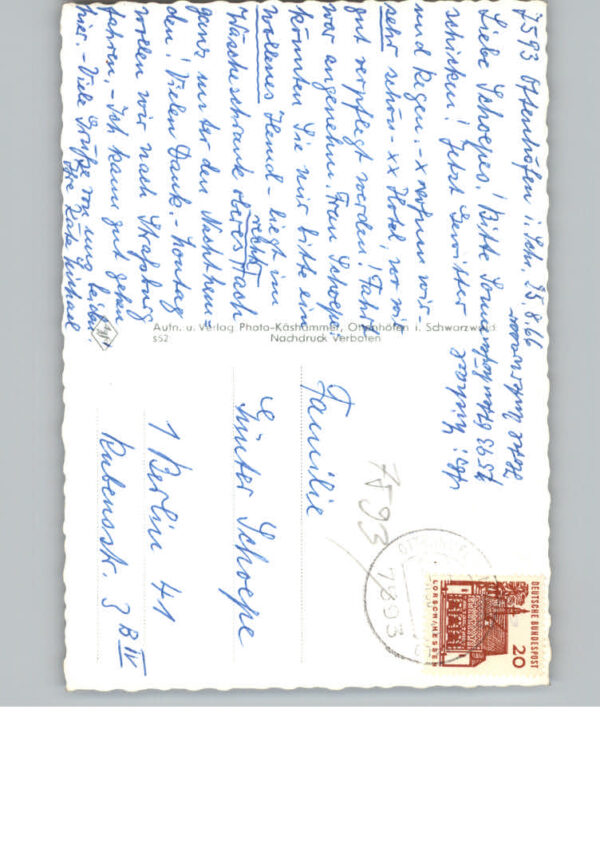 7593 Ottenhöfen i. Schw. 25.8.66
Liebe Schoepes! Bitte Sonne
schicken! Jetzt Gewitter
und Regen. - x wohnen wir -
sehr schön - xx Hotel, wo wir
gut verpflegt werden! Fahrt
war angenehm. Frau Schoepe,
könnten Sie mir bitte ein
wollenes Hemd - liegt im
Wäscheschrank oberes Fach
rechts
ganz unter den Nachthem-
den! Vielen Dank. - Sonntag
wollen wir nach Straßburg
fahren. - Ich kann gut gehen
hier. - Viele Grüße von uns beiden
Ihre
7593 Ottenhöfen
Autn. u. Verlag Photo-Käshammer, Ottenhöfen i. Schwarzwald
s52
Nachdruck Verboten
Familie
Günter Schoepe
1 Berlin 41
Rubensstr. 3 B IV
7593
7593
DEUTSCHE BUNDESPOST
20
LORSCH/HESSEN